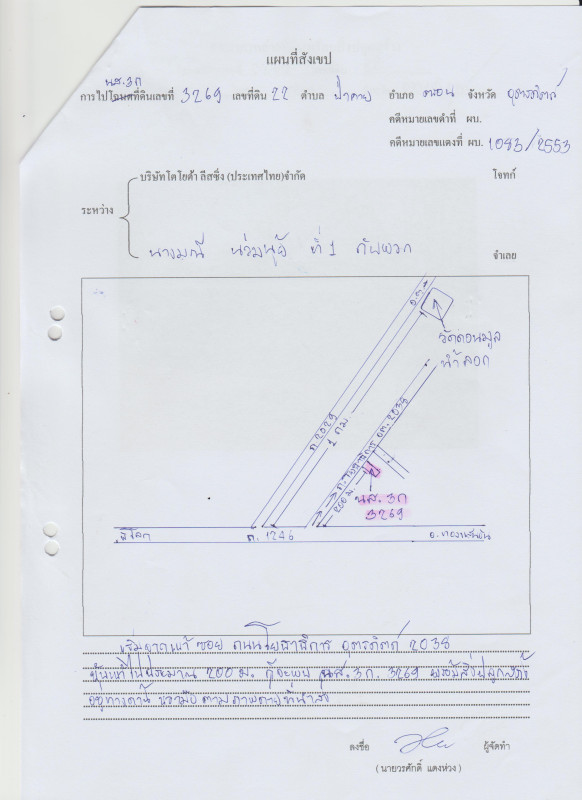 แผนที่สังเขป
น.ส.3ก
การไปโฉนดที่ดินเลขที่ 3269 เลขที่ดิน 22 ตำบล ป่าคาย อำเภอ จังหวัด อุตรดิตถ์
คดีหมายเลขดำที่ ผบ.
คดีหมายเลขแดงที่ ผบ. 1083/2553
บริษัทโตโยต้า ลีสซิ่ง (ประเทศไทย)จำกัด โจทก์
ระหว่าง
นางมณี ที่ 1 กับพวก จำเลย
วัดดอนมูล
ถ. 2029
1 กม.
ถ. โยธาธิการ อต. 2038
200 ม.
นส. 3ก
3269
ถ. 1246
เริ่มจาก ซอย ถนนโยธาธิการ อุตรดิตถ์ 2038
ประมาณ 200 ม. ก็จะพบ นส. 3ก. 3269 พร้อมสิ่งปลูกสร้าง
ลงชื่อ ผู้จัดทำ
( นายวรศักดิ์ แดงห่วง )